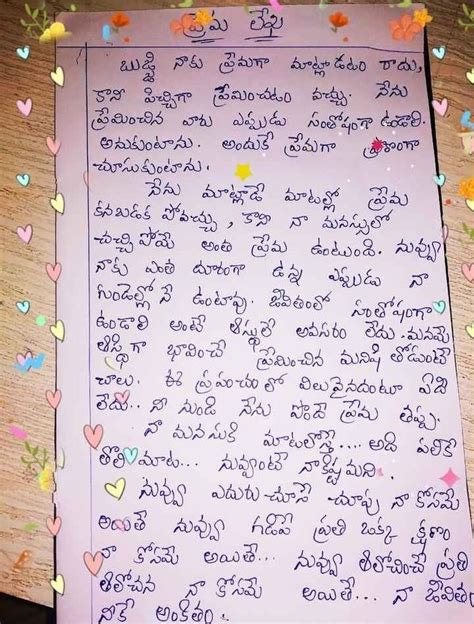 ప్రేమ లేఖ
బుజ్జి నాకు ప్రేమగా మాట్లాడటం రాదు,
కాని పిచ్చిగా ప్రేమించటం వచ్చు. నేను
ప్రేమించిన వారు ఎప్పుడు సంతోషంగా ఉండాలి
అనుకుంటాను. అందుకే ప్రేమగా ప్రాణంగా
చూసుకుంటాను.
నేను మాట్లాడే మాటల్లో ప్రేమ
కనబడక పోవచ్చు, కాని నా మనస్సులో
చచ్చి పోయే అంత ప్రేమ ఉంటుంది. నువ్వు
నాకు ఎంత దూరంగా ఉన్న ఎప్పుడు నా
గుండెల్లో నే ఉంటావు. జీవితంలో సంతోషంగా
ఉండాలి అంటే ఆస్థులే అవసరం లేదు. మనమే
ఆస్థిగా భావించే ప్రేమించిన మనిషి తోడుంటే
చాలు. ఈ ప్రపంచం లో విలువైనదంటూ ఏది
లేదు.. నీ నుండి నేను పొందే ప్రేమ తప్ప.
నా మనసుకి మాటలొస్తే.... అది పలికే
తొలి మాట... నువ్వంటే నాకిష్టమని.
నువ్వు ఎదురు-చూసే చూపు నా కోసమే
అయితే నువ్వు గడిపే ప్రతి ఒక్క క్షణం
నా కోసమే అయితే... నువ్వు ఆలోచించే ప్రతి
ఆలోచన నా కోసమే అయితే... నా జీవితం
నీకే అంకితం.